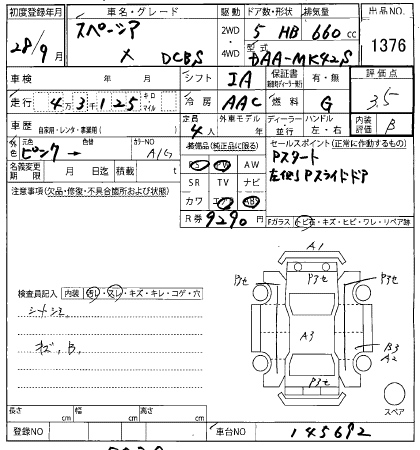 初度登録年月 車名・グレード 駆動 ドア数・形状 排気量 出品NO.
28/9月 スペーシア X DCBS 2WD・4WD 5 HB 660cc 1376
型式 DAA-MK42S
車検 年 月 シフト IA 保証書 有・無 評価点
走行 4 3 1 2 5 キロ マイル 冷房 AAC 燃料 G 3.5
車歴 自家用・レンタ・事業用( ) 定員 4人 外車モデル 年 ディーラー 並行 ハンドル 左・右 内装評価 B
外色 元色 ピンク→ 色替 カラーNO A/G
装備品(純正品に限る) セールスポイント(正常に作動するもの)
名義変更期限 月 日迄 積載 t
PS PW AW Pスタート
注意事項(欠品・修復・不具合箇所および状態)
SR TV ナビ 左側Pスライドドア
カワ エアB ABS
R券 9290円 Fガラス トビ石・キズ・ヒビ・ワレ・リペア跡
A1
B3セ P3セ P3セ
検査員記入 内装 汚レ・スレ・キズ・キレ・コゲ・穴
シートシミ
A3
キズ,B,
B3
A2
P3セ
スペア
長さ cm 幅 cm 高さ cm
登録NO 車台NO 145692